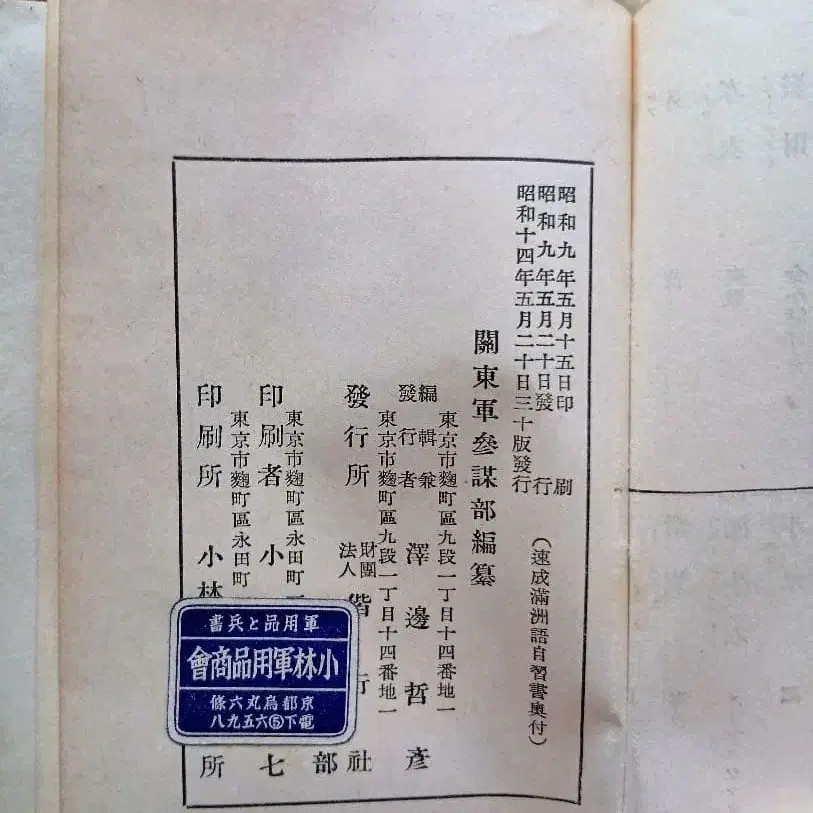 昭和九年五月十五日印刷
昭和九年五月二十日發行
昭和十四年五月二十日三十版發行
(速成滿洲語自習書奧付)
關東軍參謀部編纂
東京市麴町區九段一丁目十四番地一
編輯兼發行者 澤邊哲彥
東京市麴町區九段一丁目十四番地一
發行所 財團法人偕行社部
東京市麴町區永田町
印刷者 小 七
東京市麴町區永田町
印刷所 小林 所
軍用品と兵書
小林軍用品商會
京都烏丸六條
電下⑤六五九八